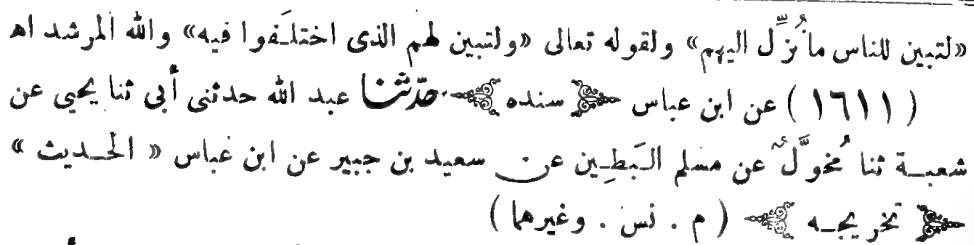 «لتبين للناس ما نُزِّل اليهم» ولقوله تعالى «ولتبين لهم الذى اختلـفوا فيه» والله المرشد اهـ
( ١٦١١ ) عن ابن عباس سنده حدّثنا عبد الله حدثنى أبى ثنا يحيى عن
شعبـة ثنا مُخوَّلٌ عن مسلم البَطِين عن سعيد بن جبير عن ابن عباس « الحـديث »
تخريجـه ( م . نس . وغيرهما )